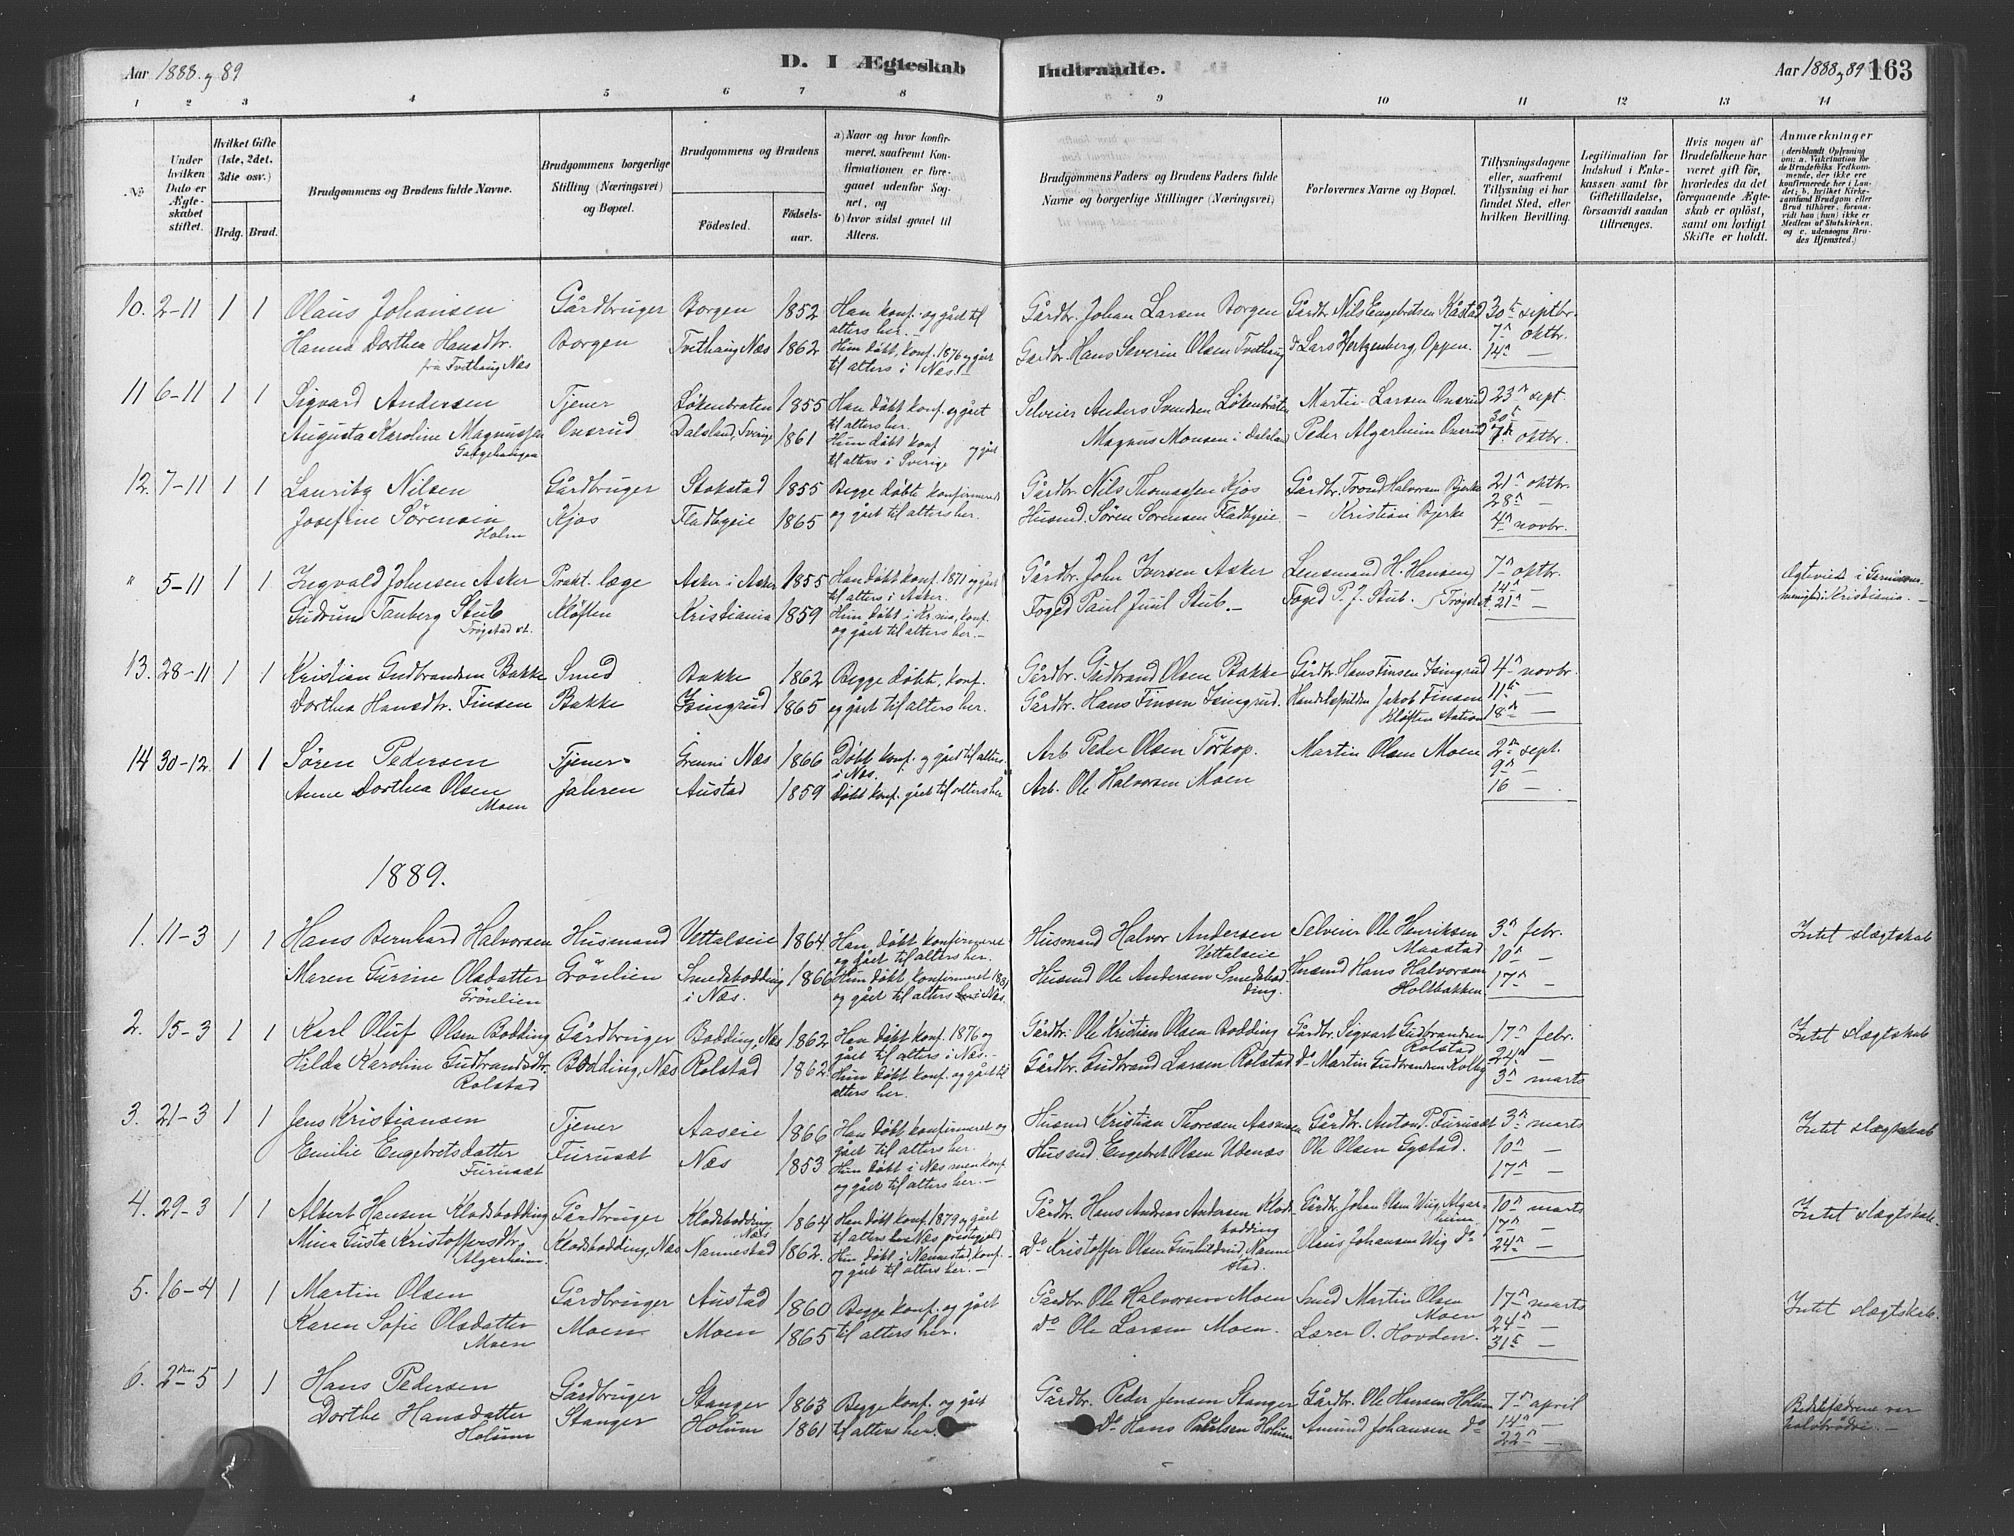 Aar 1888 og 89
D. I Ægteskab
Indtraadte.
Aar 1888 og 89 163
1 2 3 4 5 6 7 8 9 10 11 12 13 14
No
Under hvilken Dato er Ægteskabet stiftet.
Hvilket Gifte (1ste, 2det, 3die osv.)
Brdg. Brud.
Brudgommens og Brudens fulde Navne.
Brudgommens borgerlige Stilling (Næringsvei) og Bopæl.
Brudgommens og Brudens
Fødested.
Fødselsaar.
a) Naar og hvor konfirmeret, saafremt Konfirmationen er foregaaet udenfor Sognet, og
b) hvor sidst gaaet til Alters.
Brudgommens Faders og Brudens Faders fulde Navne og borgerlige Stillinger (Næringsvei)
Forlovernes Navne og Bopæl.
Tillysningsdagene eller, saafremt Tillysning ei har fundet Sted, efter hvilken Bevilling.
Legitimation for Indskud i Enkekassen samt for Giftetilladelse, forsaavidt saadan tiltrænges.
Hvis nogen af Brudefolkene har været gift før, hvorledes da det foregaaende Ægteskab er opløst, samt om lovligt Skifte er holdt.
Anmærkninger (deriblandt Oplysning om: a. Vakcination for de Brudefolks Vedkommende, der ikke ere konfirmerede her i Landet; b. hvilket Kirkesamfund Brudgom eller Brud tilhører, forsaavidt han (hun) ikke er Medlem af Statskirken, og c. udensogns Brudes Hjemsted.)
10. 2-11 1 1 Olaus Johansen Gårdbruger Borgen 1852 Han konf. og gået til alters her. Gårdbr. Johan Larsen Borgen Gårdbr. Nils Engebretsen Kåstad 30te septbr.
Hanna Dorthea Hansdtr. fra Tvithaug Næs Borgen Tvithaug Næs 1862 Hun døbt, konf. 1876 og gået til alters i Næs. Gårdbr. Hans Severin Olsen Tvithaug do Lars Hertzenberg, Oppen. 7de oktbr. 14de —
11 6-11 1 1 Sigvard Andersen Tjener Løkenbraten 1855 Han døbt konf. og gået til alters her. Selveier Anders Svendsen Løkenbråten Martin Larsen Onsrud 23de sept
Augusta Karoline Magnussen Onsrud Dalsland, Sverige 1861 Hun døbt konf og gået til alters i Sverige Magnus Monsen i Dalsland Peder Algarheim Onsrud 30te 7de oktbr.
12. 7-11 1 1 Lauritz Nilsen Gårdbruger Stokstad 1855 Begge døbte konfirmerede og gået til alters her. Gårdbr. Nils Thomassen Kjos Gårdbr. Trond Halvorsen Bjerke 21de oktbr.
Josefine Sørensen Holm Kjos Fladbyeie 1865 Husmd. Søren Sørensen Fladbyeie — Kristian Bjerke 28de — 4de novbr.
" 5-11 1 1 Ingvald Johnsen Asker Prakt. læge Asker i Asker 1855 Han døbt konf. 1871 og gået til alters i Asker. Gårdbr. John Iversen Asker Lensmand H. Hansen 7de oktbr. Ægteviet i Garnisonsmenighed i Kristiania.
Gudrun Tanberg Stub Trøgstad st. Kløften Kristiania 1859 Hun døbt i Kr.nia, konf. og gået til alters her. Foged Paul Juul Stub. Foged P. J. Stub. Trøgst. 14de — 21de —
13. 28-11 1 1 Kristian Gudbrandsen Bakke Smed Bakke 1862 Begge døbt, konf. Gårdbr. Gudbrand Olsen Bakke Gårdbr. Hans Finsen Isingrud 4de novbr.
Dorthea Hansdtr. Finsen Bakke Isingrud 1865 og gået til alters her. Gårdbr. Hans Finsen Isingrud. Jakob Finsen Kløften Station 11te — 18de —
14 30-12 1 1 Søren Pedersen Tjener Grenni Næs 1866 Døbt konf. og gået til alters i Næs. Arb Peder Olsen Torkop. Martin Olsen Moen 2den sept.
Anne Dorthea Olsen Moen Jahren Austad 1859 Døbt konf. gået til alters her Arb. Ole Halvorsen Moen 9de — 16 —
1889.
1. 11-3 1 1 Hans Bernhard Halvorsen Husmand Vettalseie 1864 Han døbt konfirmeret og gået til alters her. Husmand Halvor Andersen Vettalseie Selveier Ole Henriksen Maastad 3de febr. Intet slægtskab
Maren Gurine Olsdatter Grönlien Grönlien Smedsbodding i Næs. 1866 Hun døbt, konfirmeret 1881 og gået til alters i Næs. Husmd Ole Andersen Smedsbodding. Husmd Hans Halvorsen Holtbakken 10de — 17de —
2. 15-3 1 1 Karl Oluf Olsen Bodding Gårdbruger Bodding, Næs 1862 Han døbt konf. 1876 og gået til alters i Næs. Gårdbr. Ole Kristian Olsen Bodding Gårdbr. Segvart Gudbrandsen Rolstad 17de febr. Intet slægtskab
Helda Karoline Gudbrandsdtr. Rolstad Bodding, Næs Rolstad 1862 Hun døbt konf. og gået til alters her. Gårdbr. Gudbrand Larsen Rolstad do Martin Gudbrandsen Kolby 24de — 3de marts
3. 21-3 1 1 Jens Kristiansen Tjener Aaseie 1866 Han døbt konfirmeret og gået til alters her. Husmd Kristian Thoresen Gårdbr. Anton P. Furusæt 3de marts Intet slægtskab
Emilie Engebretsdatter Furusæt Furusæt Næs 1853 Hun døbt i Næs men konf og gået til alters her. Husmd. Engebret Olsen Udenæs Ole Olsen Egstad. 10de — 17de —
4. 29-3 1 1 Albert Hansen Klodsbodding Gårdbruger Klodsbodding Næs 1864 Han døbt konf. 1879 og gået til alters Næs prestegjæld Gårdbr. Hans Andreas Andersen Klodsbodding Gårdbr. Johan Olsen Wig, Algarheim 10de marts Intet slægtskab.
Mina Gusta Kristoffersdtr. Algarheim Klodsbodding, Næs Nannestad 1862. Hun døbt i Nannestad, konf. og gået til alters her. do Kristoffer Olsen Gunhildrud, Nannestad. Olaus Johansen Wig do 17de — 24de —
5. 16-4 1 1 Martin Olsen Gårdbruger Austad 1860 Begge konf. og gået Gårdbr. Ole Halvorsen Moen Smed Martin Olsen Moen 17de marts Intet slægtskab.
Karen Sofie Olsdatter Moen Moen Moen 1865 til alters her. do Ole Larsen Moen. Lærer O. Hovden. 24de — 31te —
6. 2den-5 1 1 Hans Pedersen Gårdbruger Stanger 1863 Begge konf. og gået Gårdbr. Peder Jensen Stanger Gårdbr. Ole Hansen Holum 7de april Bedstefædrene var halvbrødre.
Dorthe Hansdatter Holum Stanger Holum 1861 til alters her. Do Hans Paulsen Holum Amund Johansen do 14de — 22de —